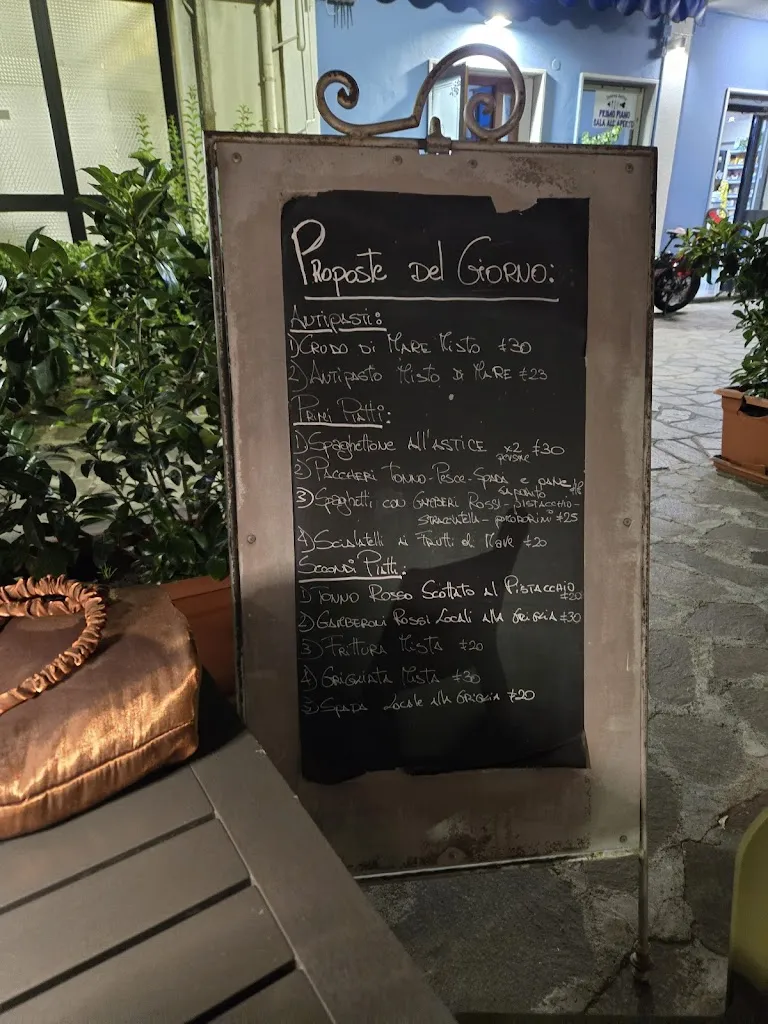 PRIMO PIANO
SALA ALL'APERTO
Proposte Del Giorno:
Antipasti:
1) Crudo di Mare Misto €30
2) Antipasto Misto di Mare €23
Primi Piatti:
1) Spaghettone all'ASTICE x2 persone €30
2) Paccheri Tonno-Pesce-Spada e pane
saporito
3) Spaghetti con Gamberi Rossi-Pistacchio-
Stracciatella-Pomodorini €25
4) Scialatelli ai Frutti di Mare €20
Secondi Piatti:
1) Tonno Rosso Scottato al Pistacchio €20
2) Gamberoni Rossi Locali alla Griglia €30
3) Frittura Mista €20
4) Grigliata Mista €30
5) Spada Locale alla Griglia €20